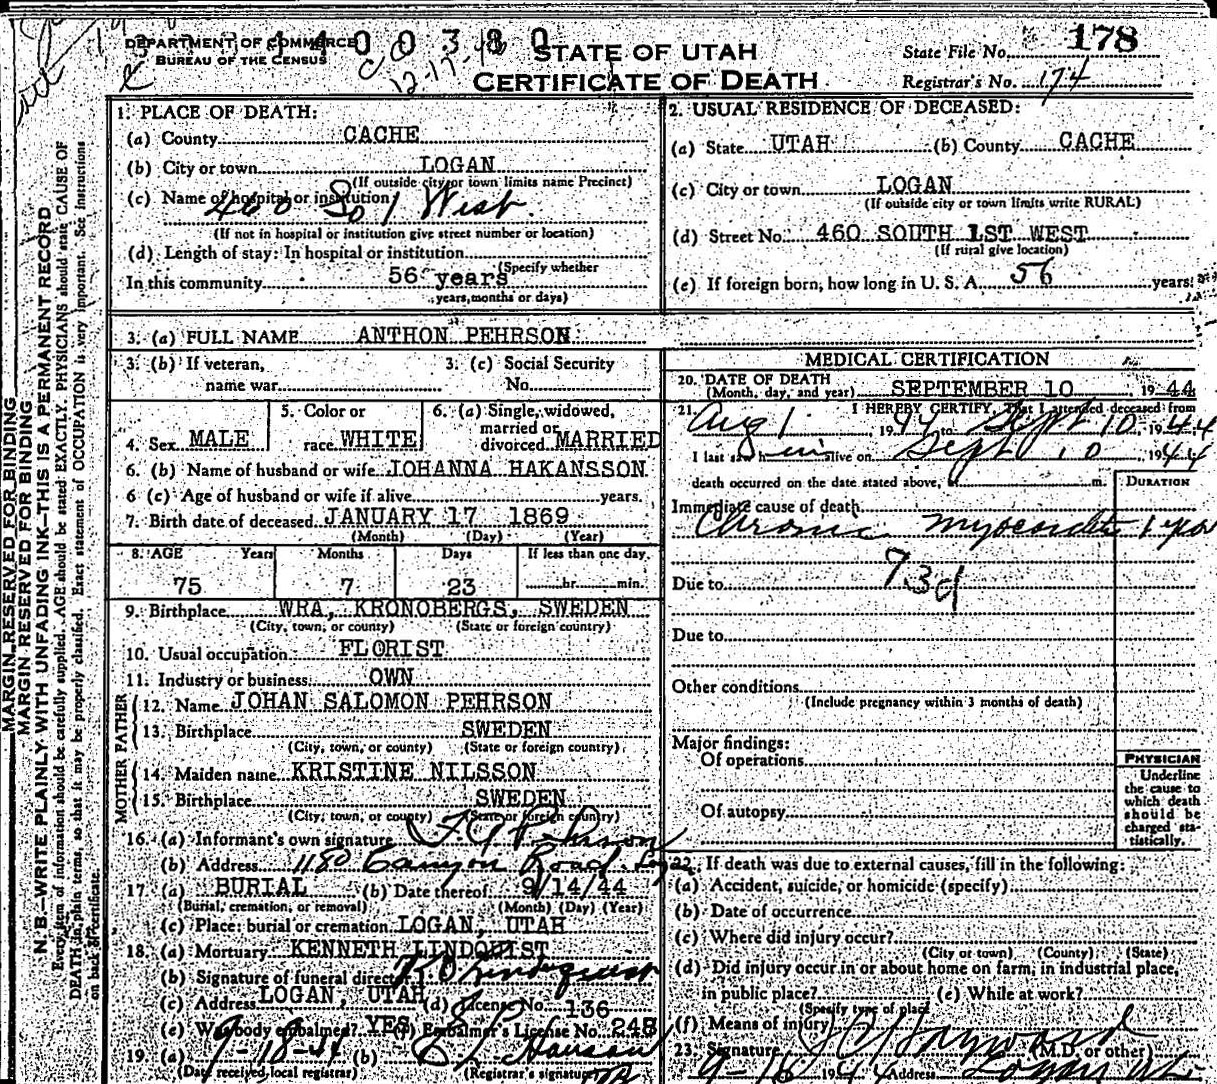 DEPARTMENT OF COMMERCE
BUREAU OF THE CENSUS
4400380
12-17-46
STATE OF UTAH
CERTIFICATE OF DEATH
State File No. 178
Registrar's No. 174
1. PLACE OF DEATH:
(a) County CACHE
(b) City or town LOGAN
(If outside city or town limits name Precinct)
(c) Name of hospital or institution
460 So 1 West.
(If not in hospital or institution give street number or location)
(d) Length of stay: In hospital or institution
(Specify whether
In this community 56 years
years, months or days)
2. USUAL RESIDENCE OF DECEASED:
(a) State UTAH (b) County CACHE
(c) City or town LOGAN
(If outside city or town limits write RURAL)
(d) Street No. 460 SOUTH 1ST WEST
(If rural give location)
(e) If foreign born, how long in U. S. A. 56 years
3. (a) FULL NAME ANTHON PEHRSON
3. (b) If veteran, name war
3. (c) Social Security No.
4. Sex MALE
5. Color or race WHITE
6. (a) Single, widowed, married or divorced MARRIED
6. (b) Name of husband or wife JOHANNA HAKANSSON
6 (c) Age of husband or wife if alive years.
7. Birth date of deceased JANUARY 17 1869
(Month) (Day) (Year)
8. AGE Years Months Days If less than one day
75 7 23 hr. min.
9. Birthplace WRA, KRONOBERGS, SWEDEN
(City, town, or county) (State or foreign country)
10. Usual occupation FLORIST
11. Industry or business OWN
FATHER
12. Name JOHAN SALOMON PEHRSON
13. Birthplace SWEDEN
(City, town, or county) (State or foreign country)
MOTHER
14. Maiden name KRISTINE NILSSON
15. Birthplace SWEDEN
(City, town, or county) (State or foreign country)
16. (a) Informant's own signature
(b) Address 1180 Canyon Road
17. (a) BURIAL (b) Date thereof 9/14/44
(Burial, cremation, or removal) (Month) (Day) (Year)
(c) Place: burial or cremation LOGAN, UTAH
18. (a) Mortuary KENNETH LINDQUIST
(b) Signature of funeral director
(c) Address LOGAN, UTAH (d) License No. 136
(e) Was body embalmed? YES (f) Embalmer's License No. 248
19. (a) 9-18-44 (b)
(Date received local registrar) (Registrar's signature)
MEDICAL CERTIFICATION
20. DATE OF DEATH
(Month, day, and year) SEPTEMBER 10 1944
21. I HEREBY CERTIFY, That I attended deceased from
Aug 1, 1944 to Sept 10, 1944
I last saw him alive on Sept 10, 1944
death occurred on the date stated above, m.
DURATION
Immediate cause of death
Chronic 1 year
93d
Due to
Due to
Other conditions
(Include pregnancy within 3 months of death)
Major findings:
Of operations
Of autopsy
PHYSICIAN
Underline
the cause to
which death
should be
charged sta-
tistically.
22. If death was due to external causes, fill in the following:
(a) Accident, suicide, or homicide (specify)
(b) Date of occurrence
(c) Where did injury occur?
(City or town) (County) (State)
(d) Did injury occur in or about home on farm, in industrial place,
in public place? (e) While at work?
(Specify type of place
(f) Means of injury
23. Signature (M.D. or other)
9-16 1944 Address Logan Ut.
MARGIN RESERVED FOR BINDING
MARGIN RESERVED FOR BINDING
N. B.—WRITE PLAINLY WITH UNFADING INK—THIS IS A PERMANENT RECORD
Every item of information should be carefully supplied. AGE should be stated EXACTLY. PHYSICIANS should state CAUSE OF
DEATH in plain terms, so that it may be properly classified. Exact statement of OCCUPATION is very important. See instructions
on back of certificate.